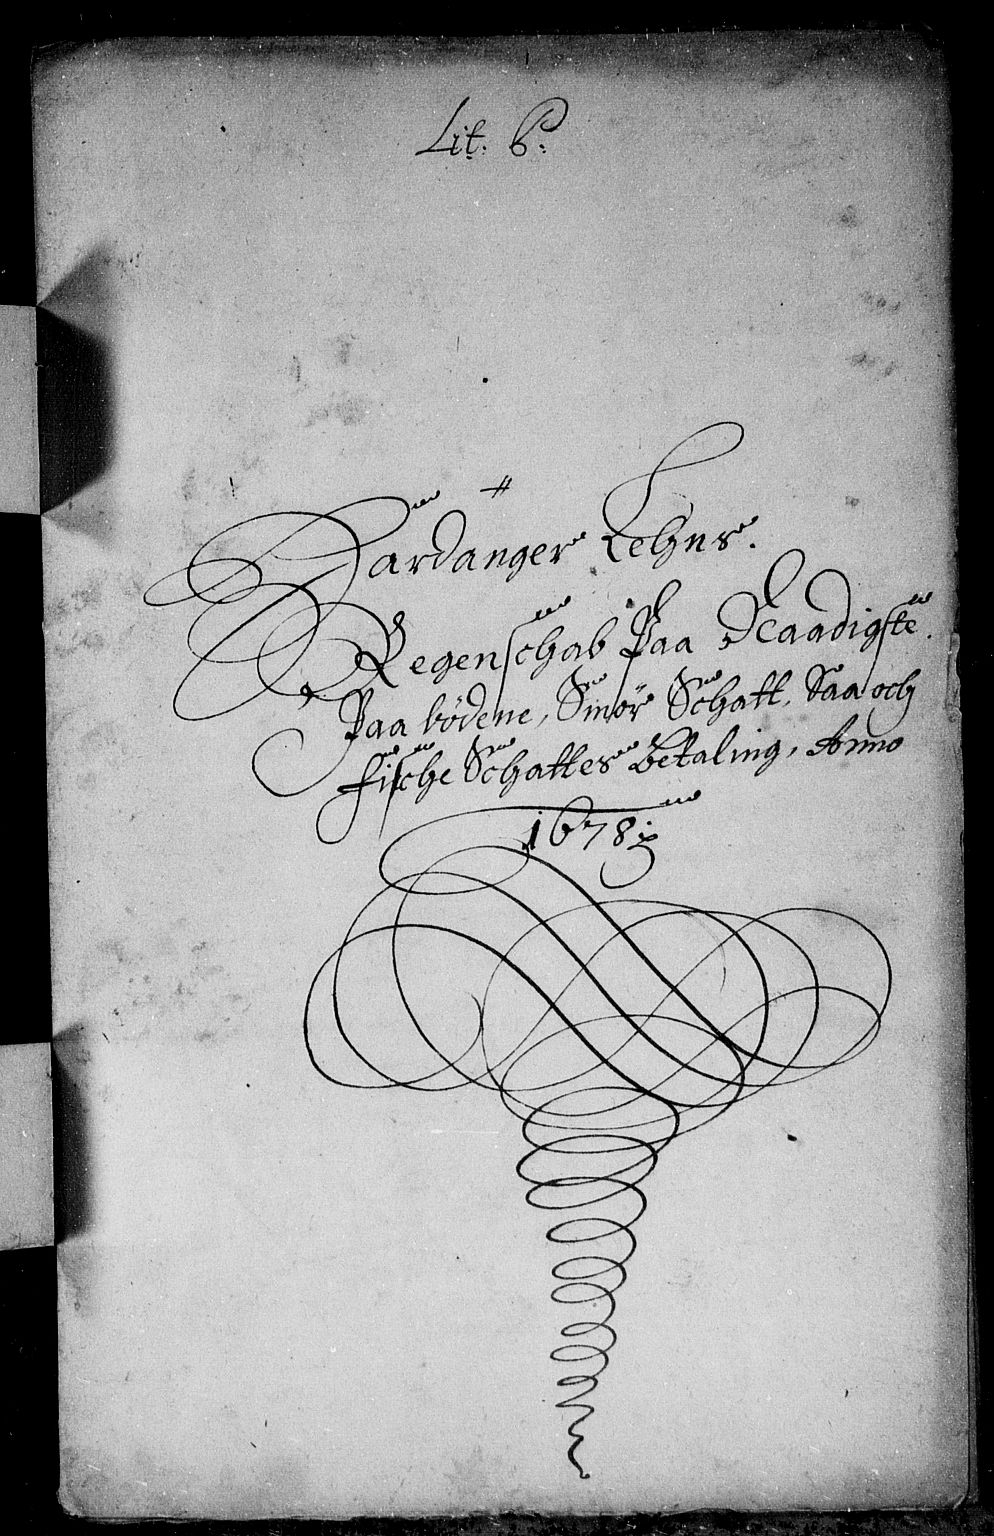 Lit. B:
Hardanger Lehns.
Regenschab Paa Naadigste
Paabødene, Smør Schatt, Saa och
fische Schattes Betaling, Anno
1678